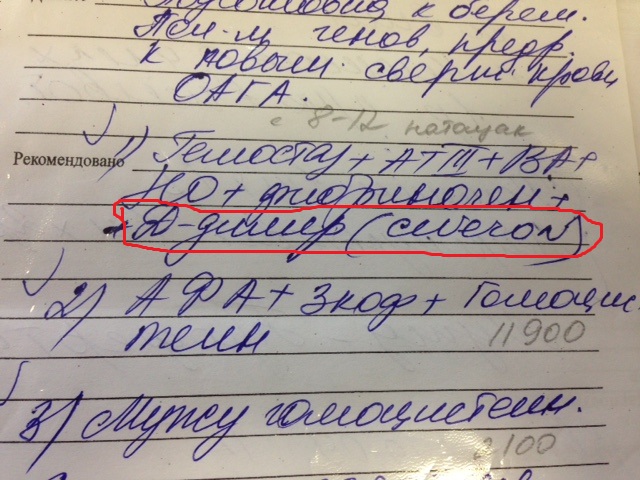 к берем.
Пол-м генов, предр.
к повыш. сверт. крови
ОАГА.
с 8-12 натощак
Рекомендовано 1) Гемостаз + АТ III + ВА +
+ фибриноген +
+ Д-димер (
2) АФА + 3 коф + Гомоцис
теин 11900
3) Мужу гомоцистеин.
2100